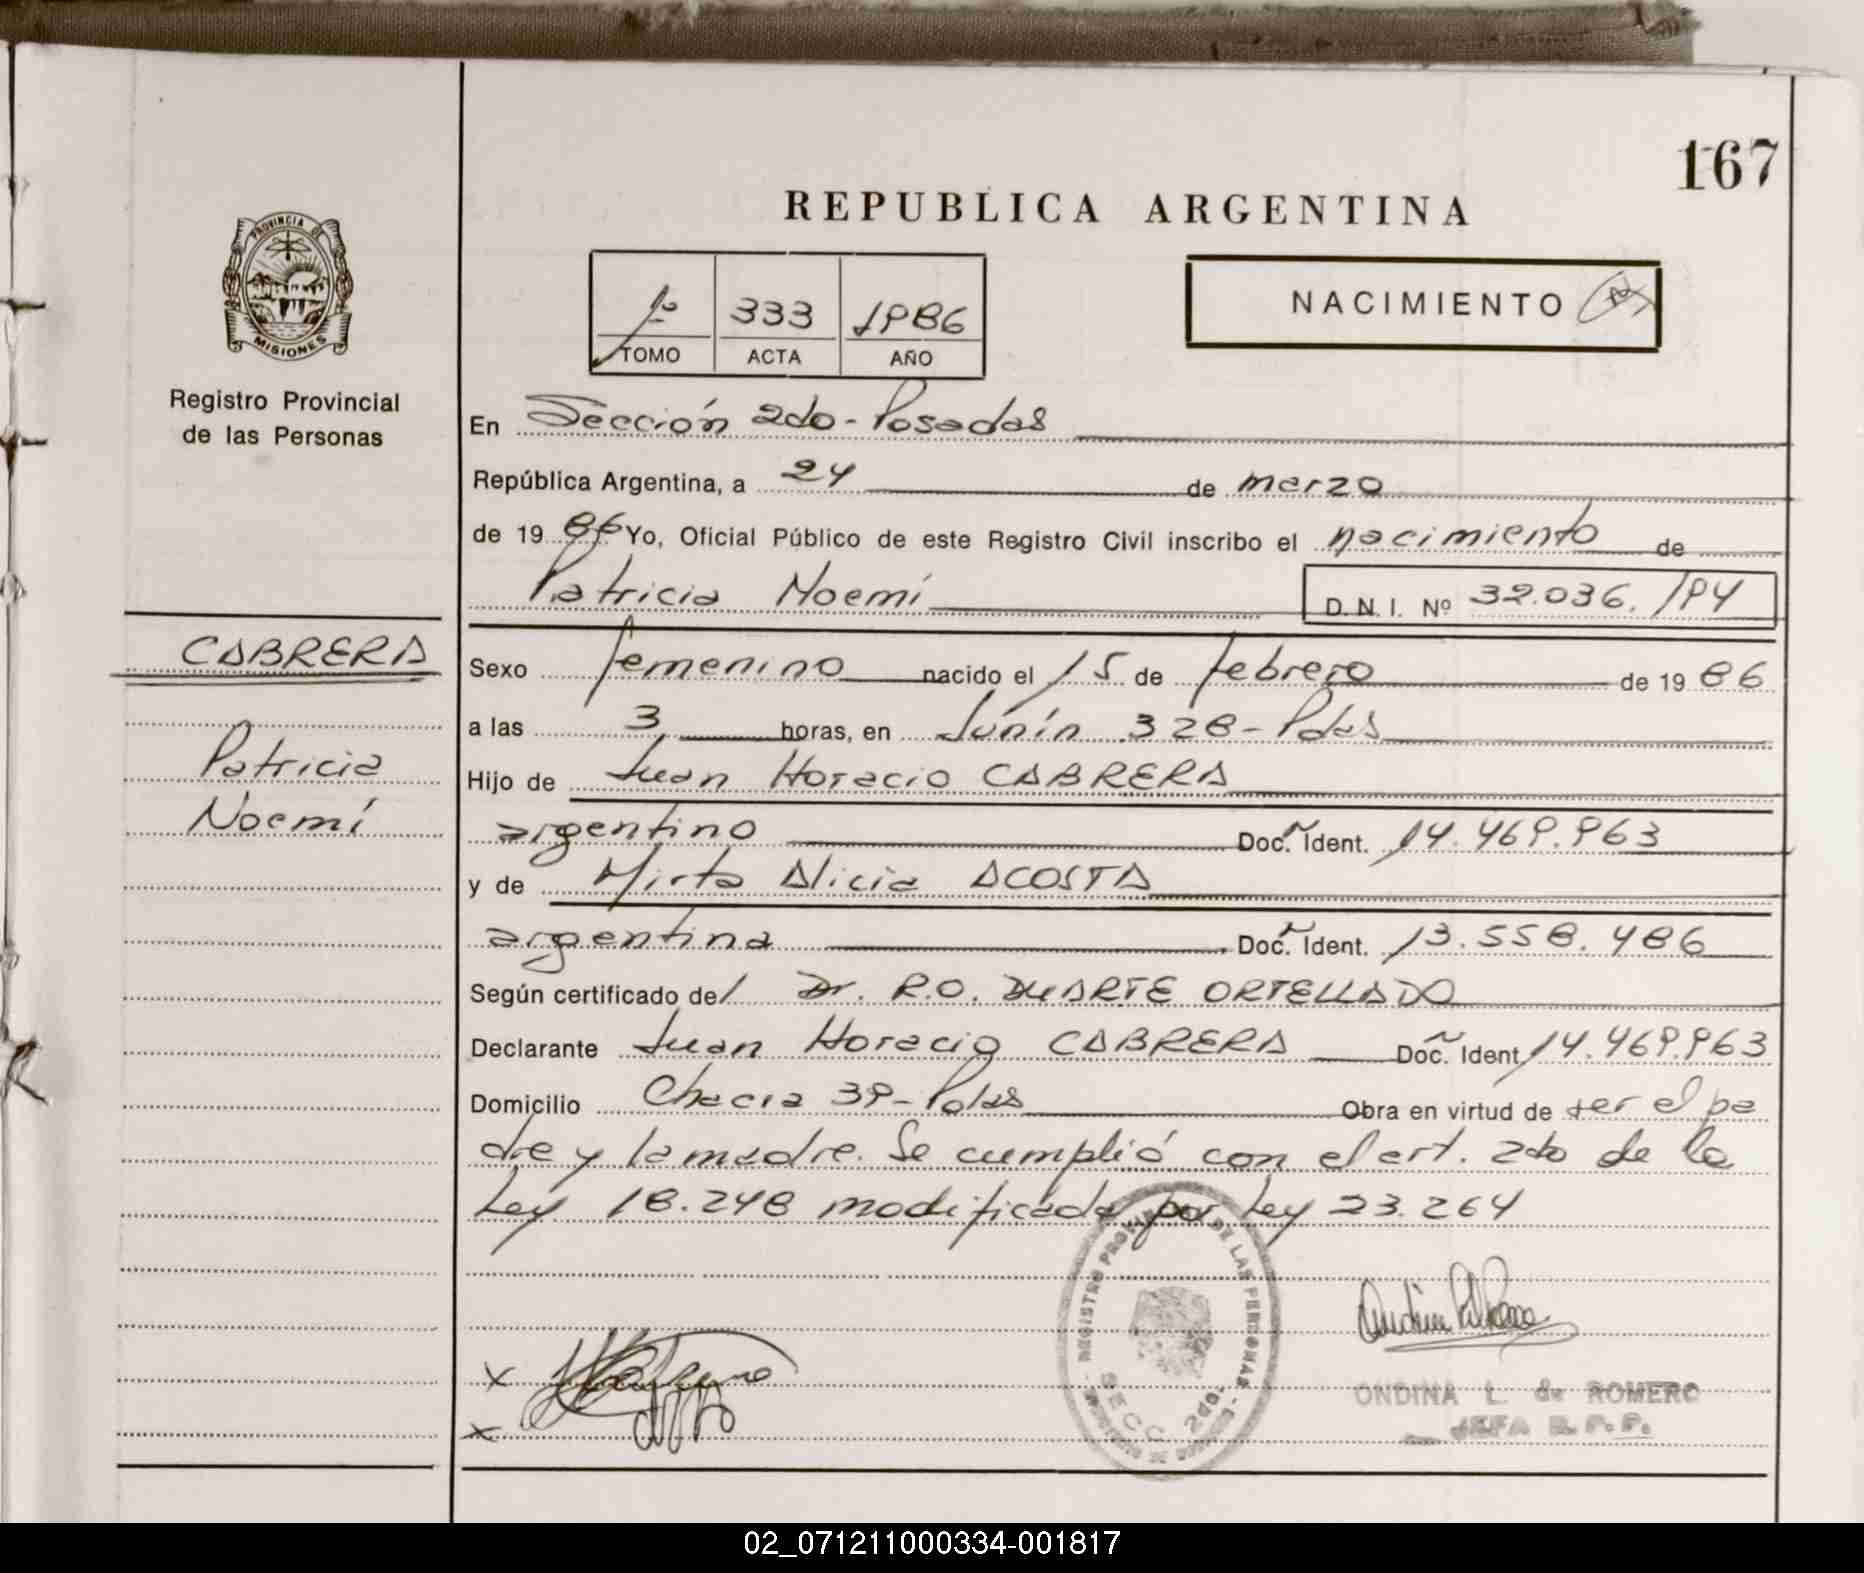 167
REPUBLICA ARGENTINA
PROVINCIA DE
MISIONES
Registro Provincial
de las Personas
1º 333 1986
TOMO ACTA AÑO
NACIMIENTO
En Sección 2do - Posadas
República Argentina, a 24 de marzo
de 19 86 Yo, Oficial Público de este Registro Civil inscribo el nacimiento de
Patricia Noemí D.N.I. Nº 32.036.194
CABRERA
Patricia
Noemí
Sexo femenino nacido el 15 de febrero de 19 86
a las 3 horas, en Junín 328 - Pdas
Hijo de Juan Horacio CABRERA
argentino Doc. Ident. 14.469.963
y de Mirta Alicia ACOSTA
argentina Doc. Ident. 13.558.486
Según certificado del Dr. R.O. DUARTE ORTELLADO
Declarante Juan Horacio CABRERA Doc. Ident 14.469.963
Domicilio Chacra 39 - Pdas Obra en virtud de ser el pa
dre y la madre. Se cumplió con el art. 2do de la
Ley 18.248 modificada por Ley 23.264
REGISTRO PROVINCIAL DE LAS PERSONAS
SECC. 2do.
ONDINA L. de ROMERO
JEFA R. P. P.
02_071211000334-001817